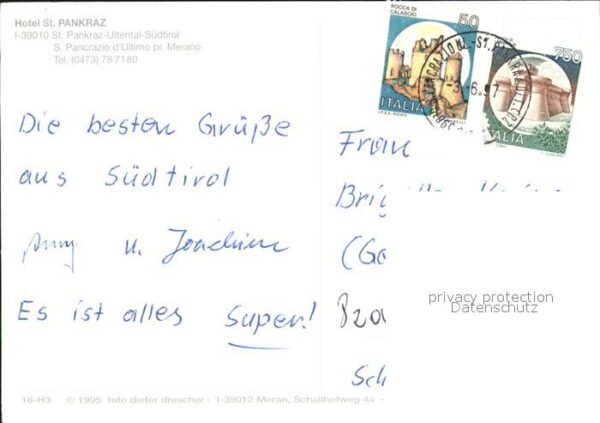 Hotel St. PANKRAZ
I-39010 St. Pankraz-Ultental-Südtirol
S. Pancrazio d'Ultimo pr. Merano
Tel. (0473) 78 71 80
Die besten Grüße
aus Südtirol
u. Joachim
Es ist alles super!
ROCCA DI
CALASCIO
50
ITALIA
750
ITALIA
-3.-6.97
Frau
privacy protection
Datenschutz
16-H3 © 1995 foto dieter drescher - I-39012 Meran, Schallhofweg 4a -